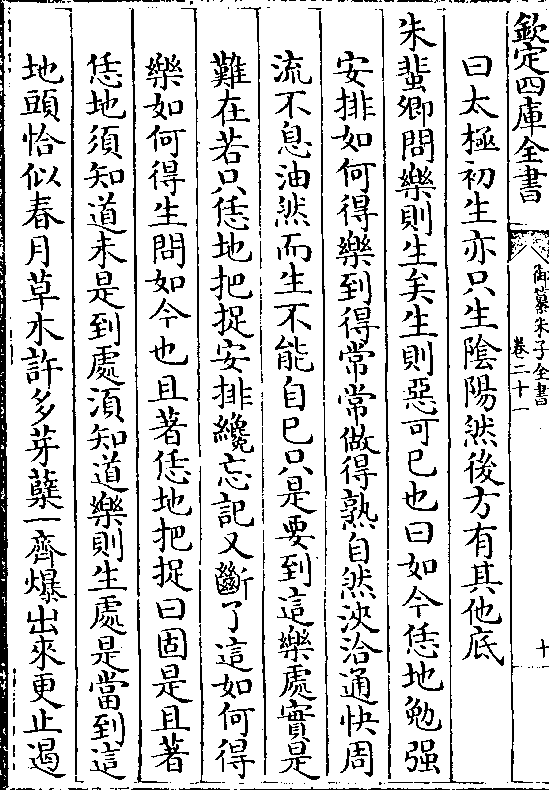 欽定四庫全書
御纂朱子全書
卷二十一
十
曰太極初生亦只生陰陽然後方有其他底
朱蜚卿問樂則生矣生則惡可已也曰如今恁地勉强
安排如何得樂到得常常做得熟自然浹洽通快周
流不息油然而生不能自已只是要到這樂處實是
難在若只恁地把捉安排纔忘記又斷了這如何得
樂如何得生問如今也且著恁地把捉曰固是且著
恁地須知道未是到處須知道樂則生處是當到這
地頭恰似春月草木許多芽蘖一齊爆出來更止遏